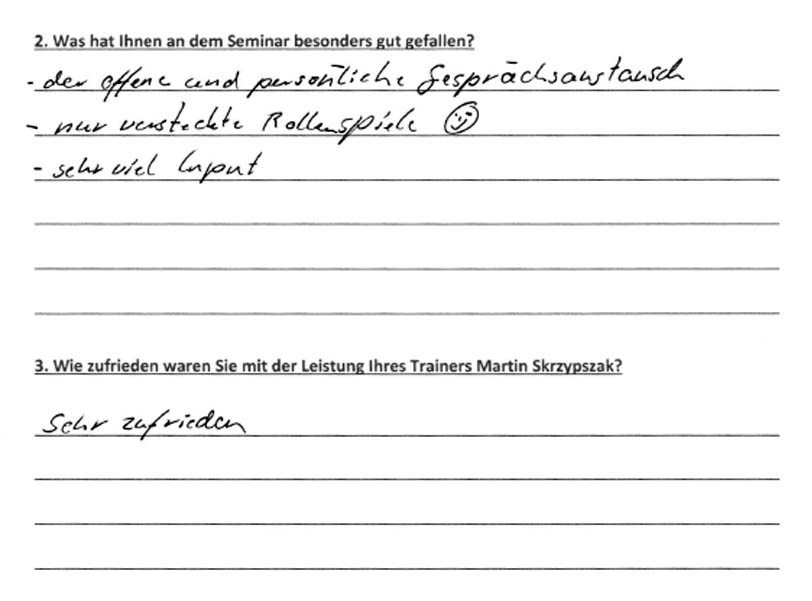 2. Was hat Ihnen an dem Seminar besonders gut gefallen?
- der offene und persönliche Gesprächsaustausch
- nur versteckte Rollenspiele ☺
- sehr viel Input
3. Wie zufrieden waren Sie mit der Leistung Ihres Trainers Martin Skrzypszak?
Sehr zufrieden